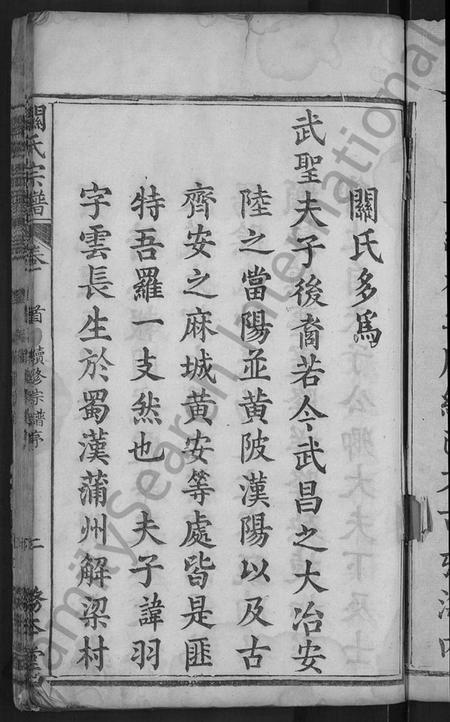 關氏多爲
武聖夫子後裔若今武昌之大冶安
陸之當陽並黃陂漢陽以及古
齊安之麻城黃安等處皆是匪
特吾羅一支然也 夫子諱羽
字雲長生於蜀漢蒲州解梁村
關氏宗譜 卷首 續修宗譜序
FamilySearch International